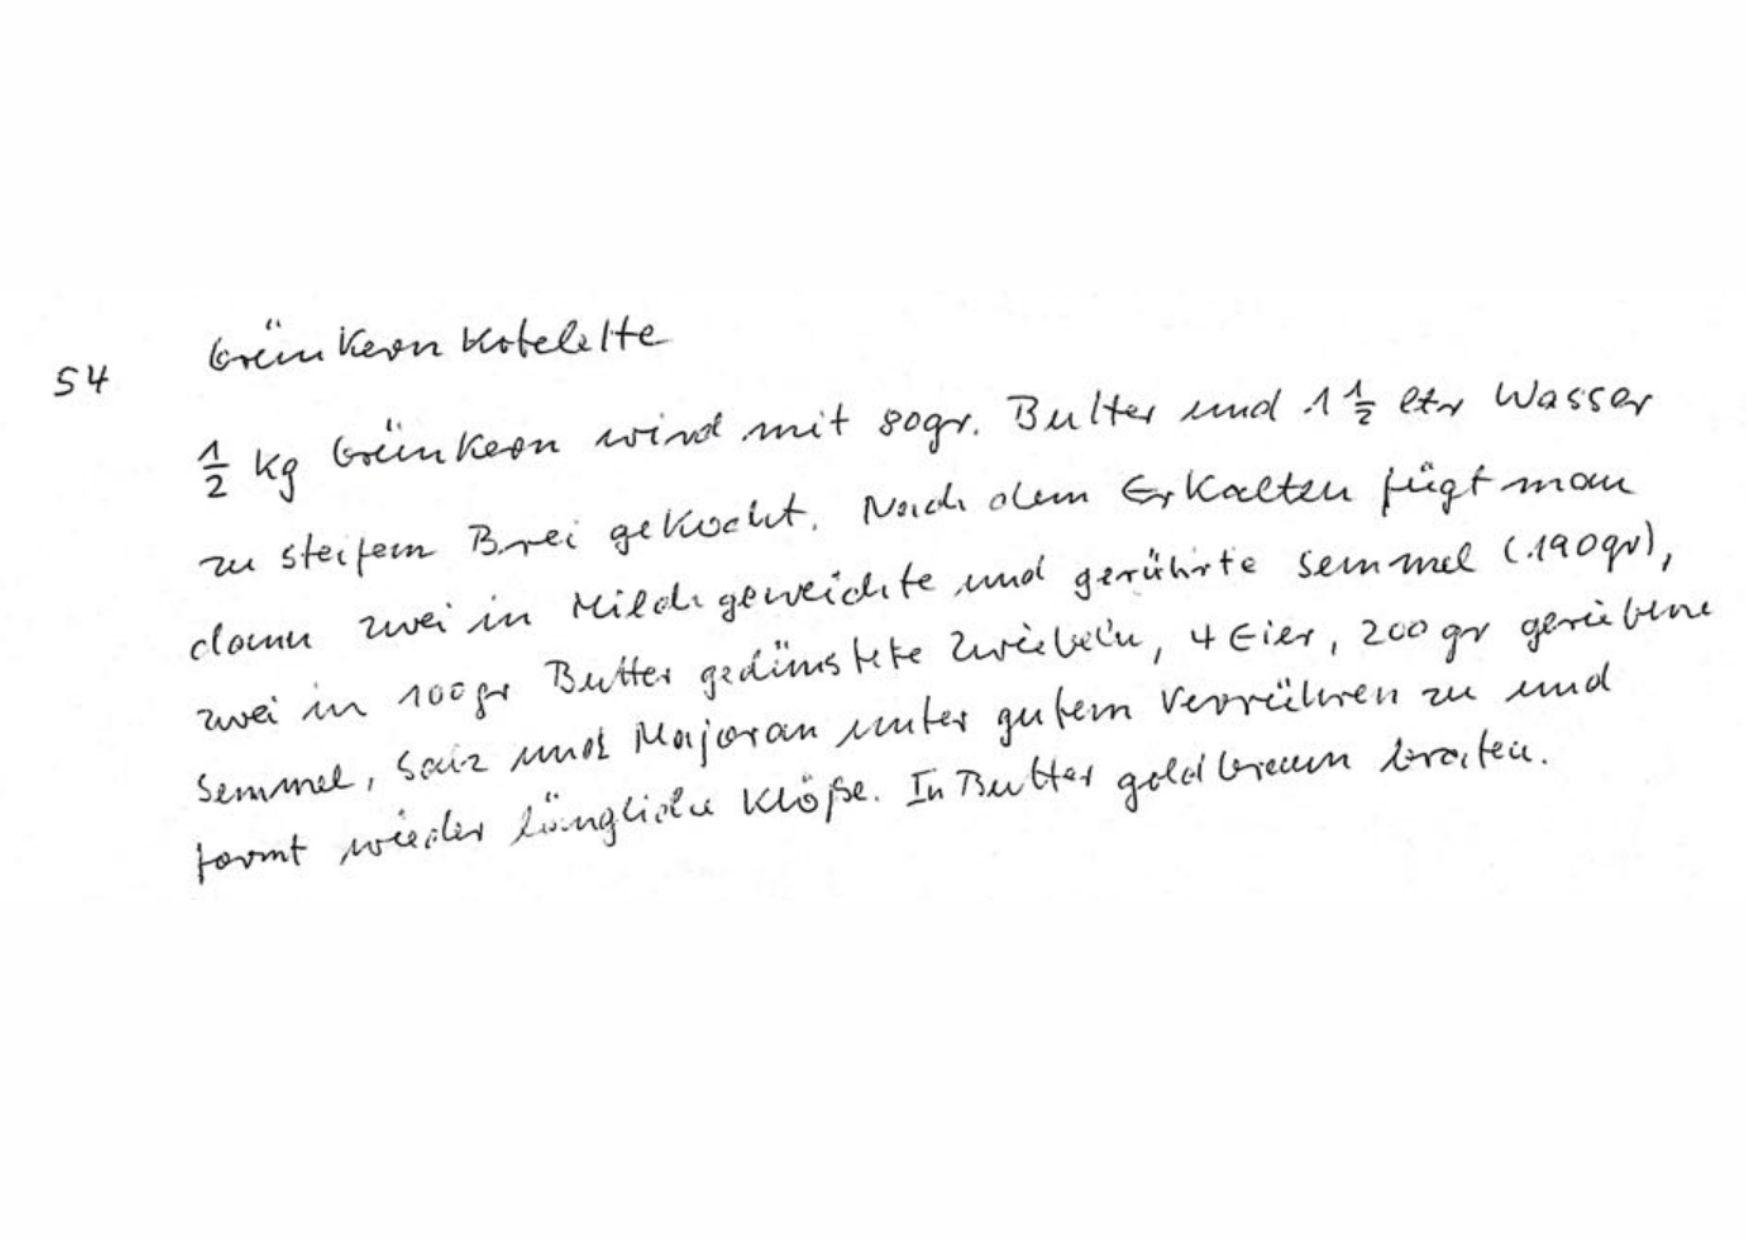 Grünkern Kotelette
54
1/2 kg Grünkern wird mit 80gr. Butter und 1 1/2 ltr Wasser
zu steifem Brei gekocht. Nach dem Erkalten fügt man
dann zwei in Milch geweichte und gerührte Semmel (190gr),
zwei in 100gr Butter gedünstete Zwiebeln, 4 Eier, 200gr geriebene
Semmel, Salz und Majoran unter gutem Verrühren zu und
formt wieder längliche Klöße. In Butter goldbraun braten.